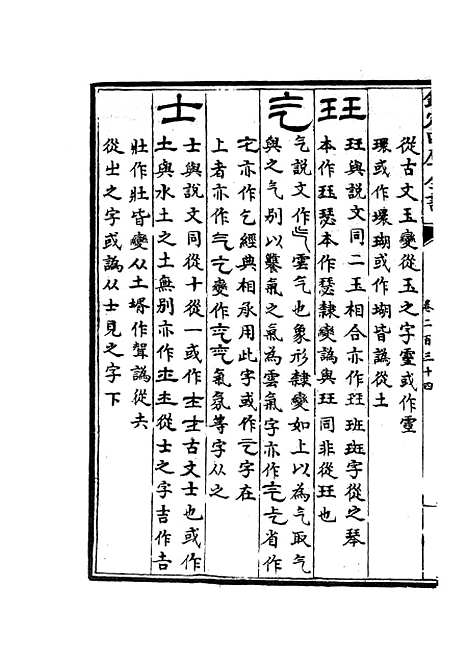 欽定四庫全書
卷二百三十四
從古文玉變從玉之字靈或作𩆜
環或作壞瑚或作堋皆譌從土
玨
玨與說文同二玉相合亦作玨班斑字從之琴
本作珡瑟本作瑟隸變譌與玨同非從玨也
气
气說文作气雲气也象形隸變如上以為气取气
與之气別以饔氣之氣為雲氣字亦作气乞省作
乞亦作乞經典相承用此字或作气字在
上者亦作气气變作气气氣氛等字从之
士
士與說文同從十從一或作土土古文士也或作
土與水土之土無別亦作𡈼士從士之字吉作吉
壯作壯皆變从土壻作聟譌從夫
從㞢之字或譌从士見之字下